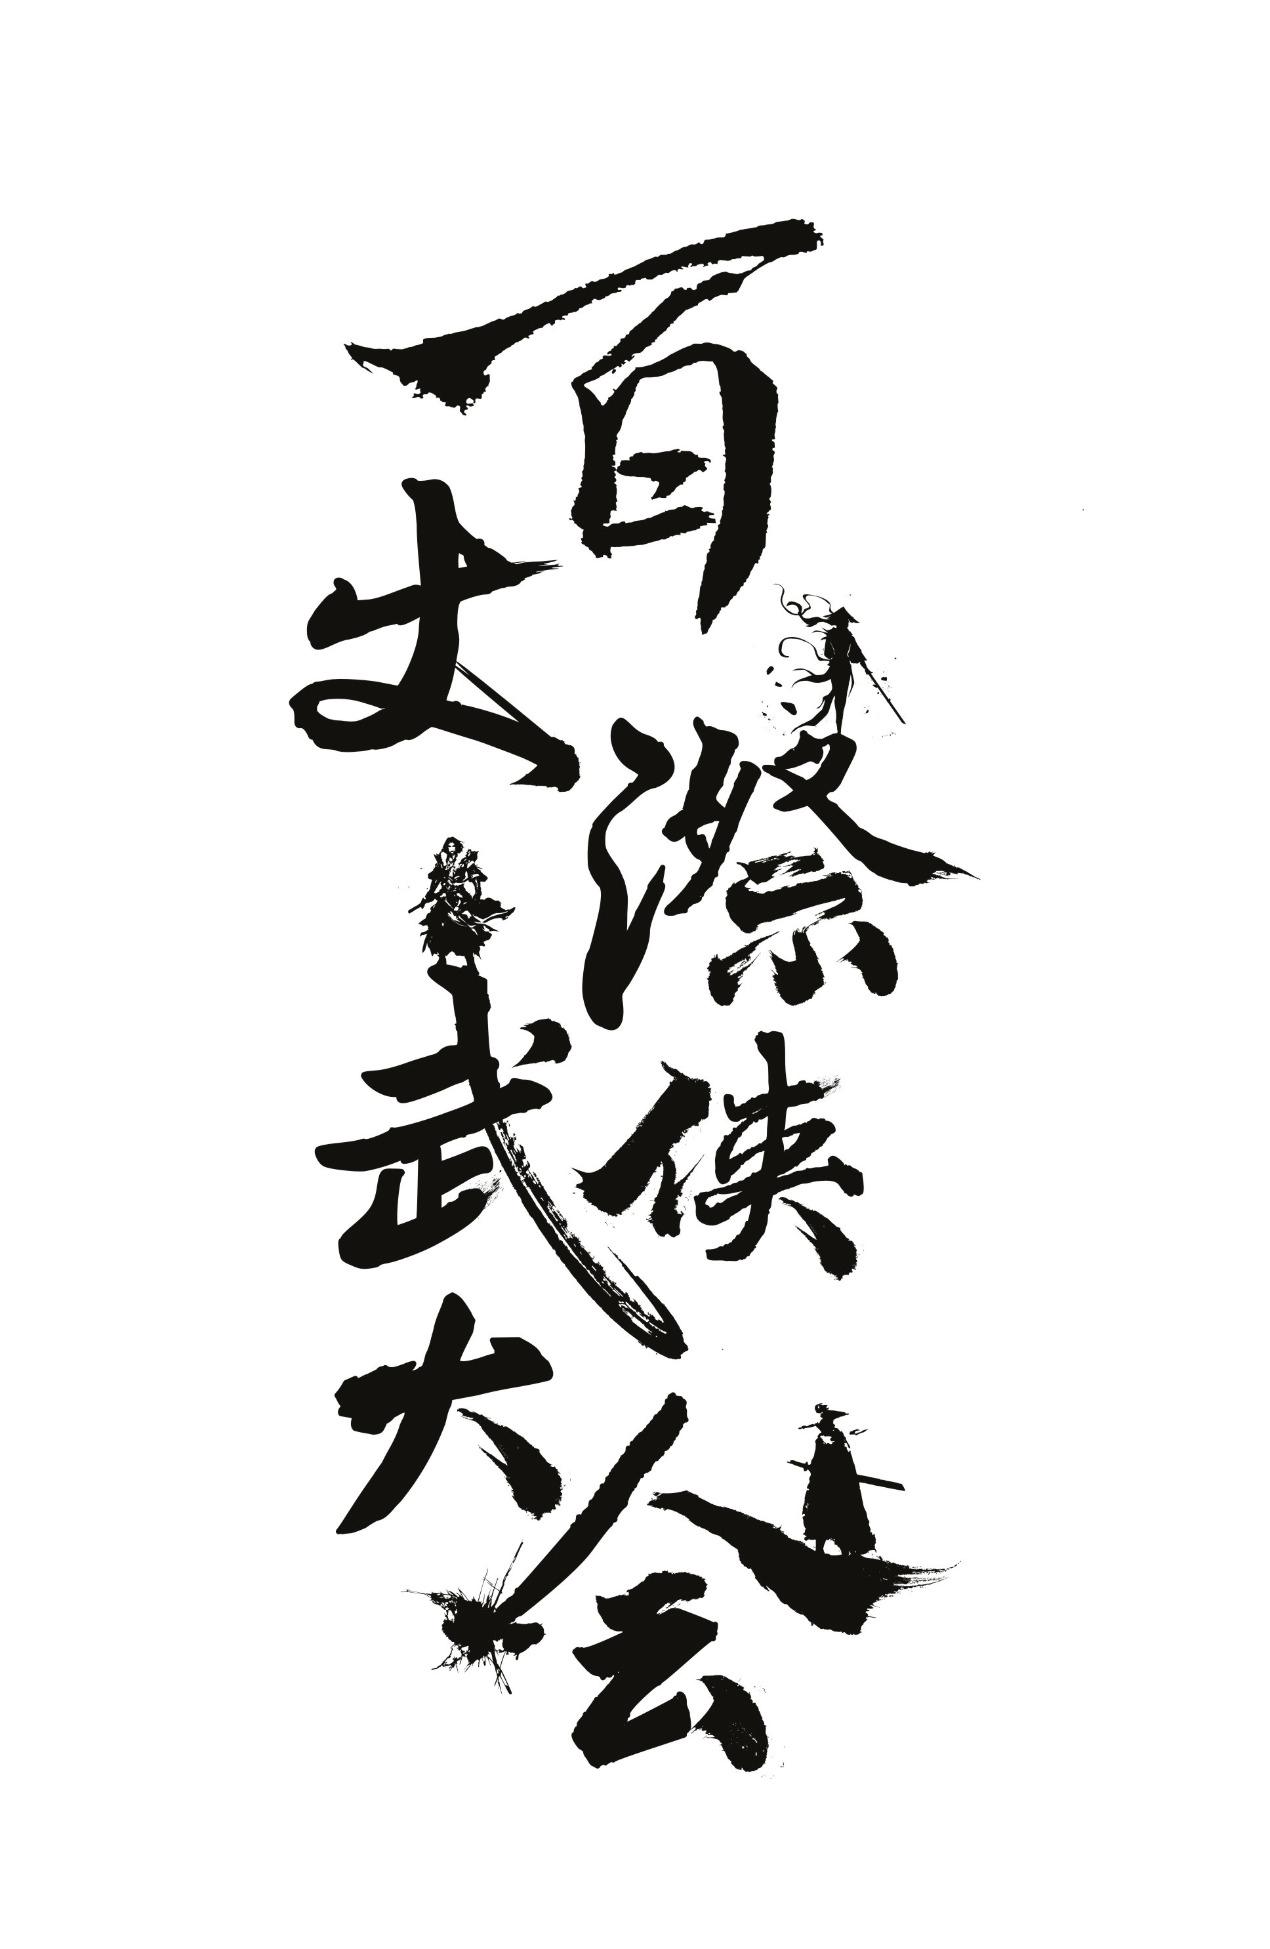 百丈漈武侠大会